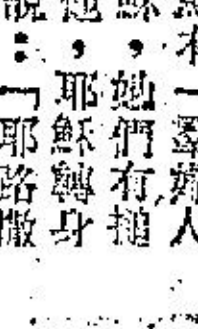 有一羣婦人
穌，她們有搥
，耶穌轉身
說：「耶路撒